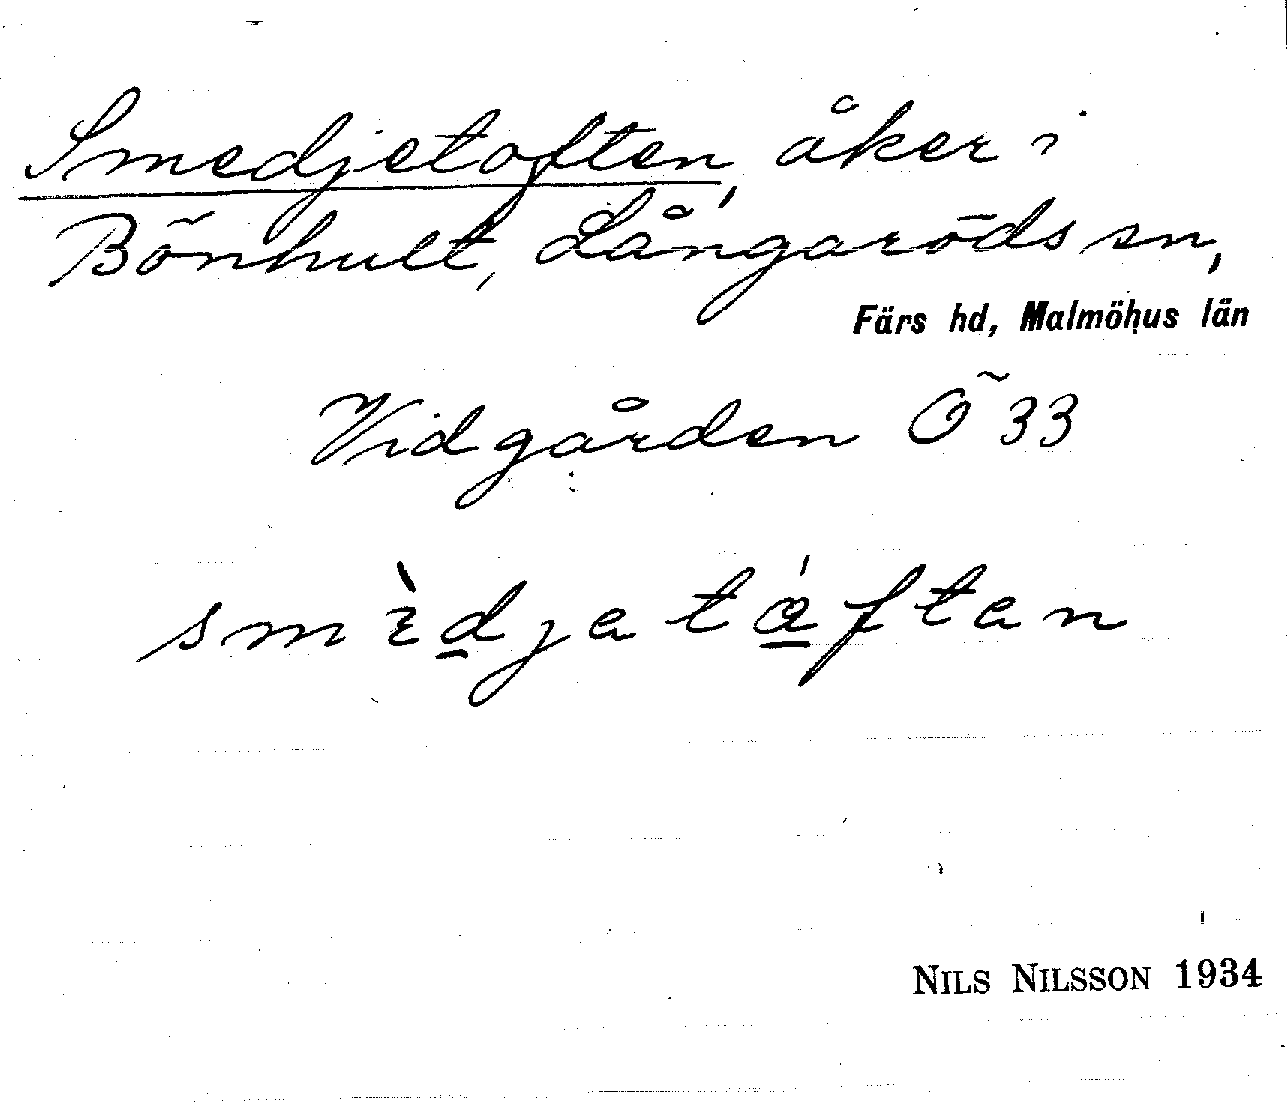 Smedjetoften, åker i
Bönhult, Långaröds sn,
Färs hd, Malmöhus län
Vidgården Ö 33
smèdjatáftan
NILS NILSSON 1934